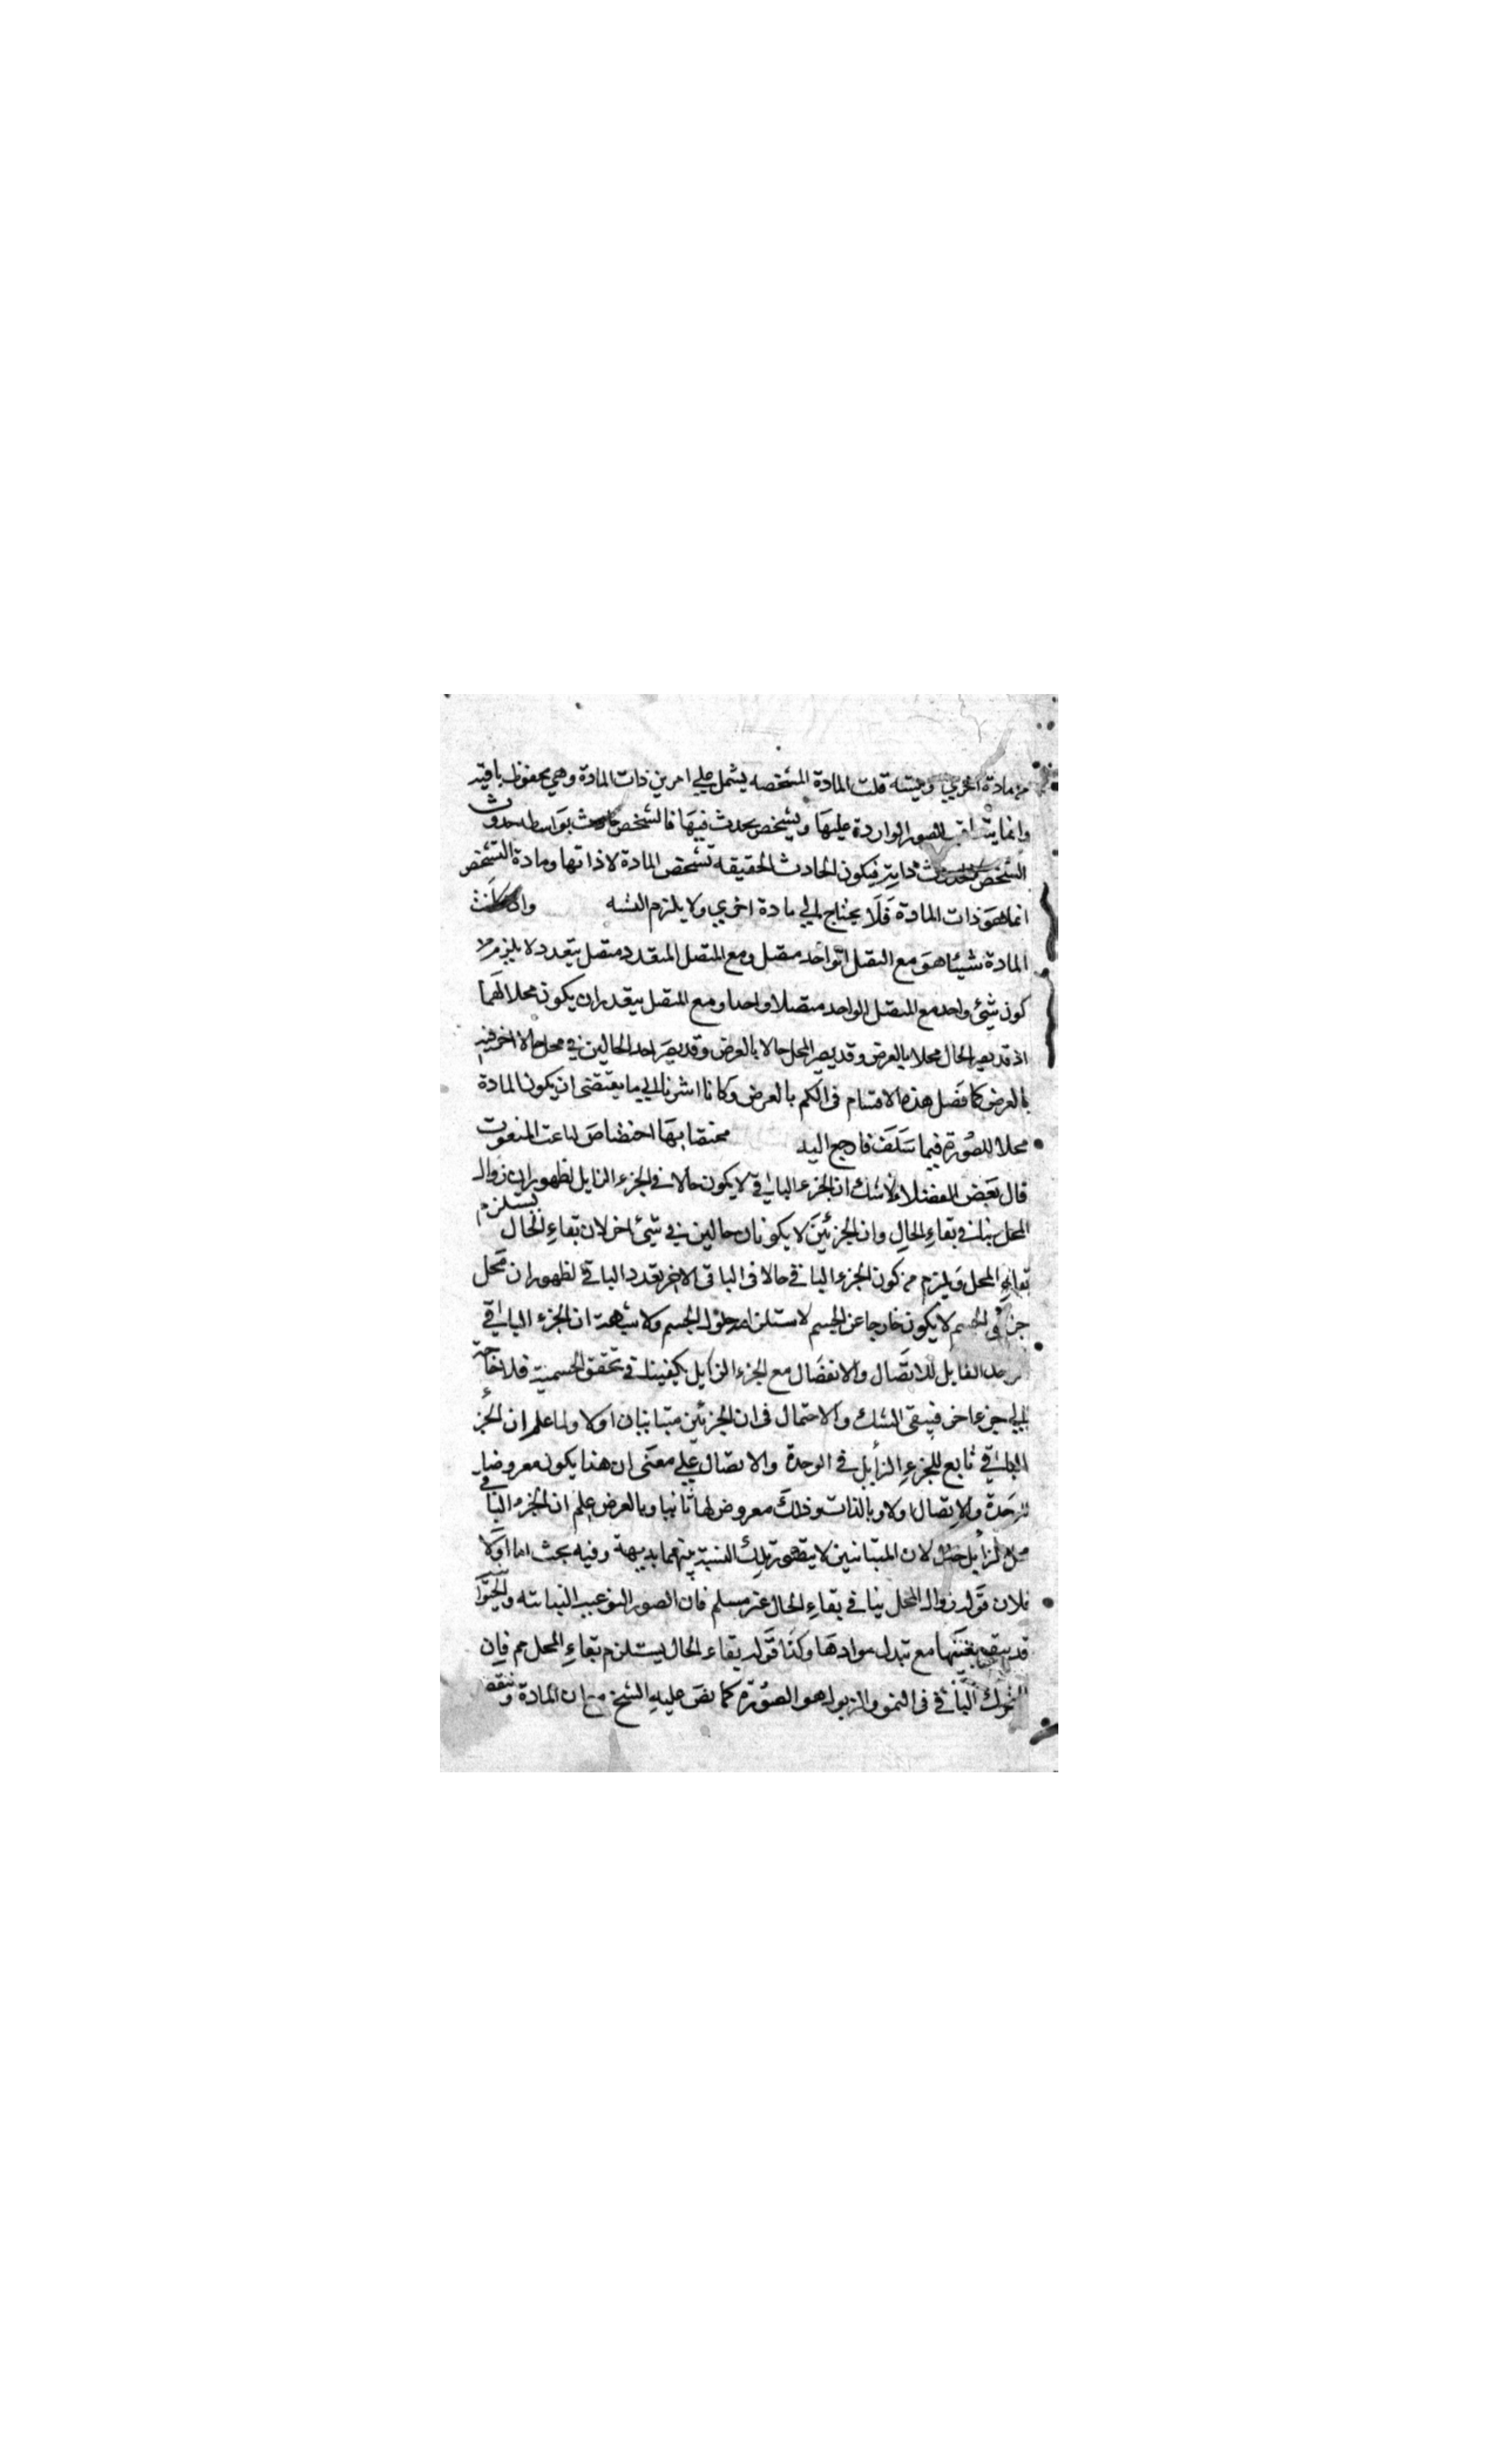 من مادة اخري وحيننه قلت المادة المشخصه يشمل علي امرين ذات المادة وهي محفوظ باقيه
وانما يتعاقب الصور الواردة عليها وتشخص يحدث فيها فالشخص حادث بواسطه حدوث
الشخص فيكون الحادث الحقيقه تشخص المادة لا ذاتها ومادة التشخص
انما هو ذات المادة فلا يحتاج الي مادة اخري ولا يلزم التسه واذ كانت
المادة شيئا هو مع المتصل الواحد متصل ومع المتصل المتعدد متصل يتعدد لا يلزم من
كون شئ واحد مع المتصل الواحد متصلا واحدا ومع المتصل يتعدد ان يكون محلا لهما
اذ قد يصير الحال محلا بالعرض وقد يصير المحل حالا بالعرض وقد يصير احد الحالين في محل حالا اخر فيه
بالعرض كما فصل هذه الاقسام في الكم بالعرض وكانا اشرنا الي ما يقتضى ان يكون المادة
محلا للصورة فيما سلف فارجع اليه مختصا بها اختصاص الناعت المنعوت
قال بعض الفضلاء لا شك ان الجزء الباقي لا يكون حالا في الجزء الزايل لظهور ان زوال
المحل ينافي بقاء الحال وان الجزئين لا يكونان حالين في شئ اخر لان بقاء الحال يستلزم
بقاء المحل ويلزم من كون الجزء الباقي حالا في الباقي الاخر تعدد الباقي لظهور ان محل
جزئي الجسم لا يكون خارجا عن الجسم لاستلزامه حلول الجسم ولا شبهة ان الجزء الباقي
القابل للاتصال والانفصال مع الجزء الزايل يكفينا في تحقق الجسمية فلا حاجة
الي جزء اخر فيبقى الشك والاحتمال في ان الجزئين متباينان او لا ولما علم ان الجزء
الباقي تابع للجزء الزايل في الوحدة والاتصال علي معنى ان هذا يكون معروضا
للوحدة والاتصال اولا وبالذات وذلك معروض لها ثانيا وبالعرض علم ان الجزء الباقي
محل الزايل لان المتباينين لا يتصور تلك النسبة بينهما بديهة وفيه بحث اما اولا
فلان قوله زوال المحل ينافي بقاء الحال غير مسلم فان الصور النوعية النباتيه والحيوانية
قد يبقى بعينها مع تبدل موادها وكذا قوله بقاء الحال يستلزم بقاء المحل مم فان
الباقي في النمو والزبول هو الصورة كما نص عليه الشيخ مع ان المادة